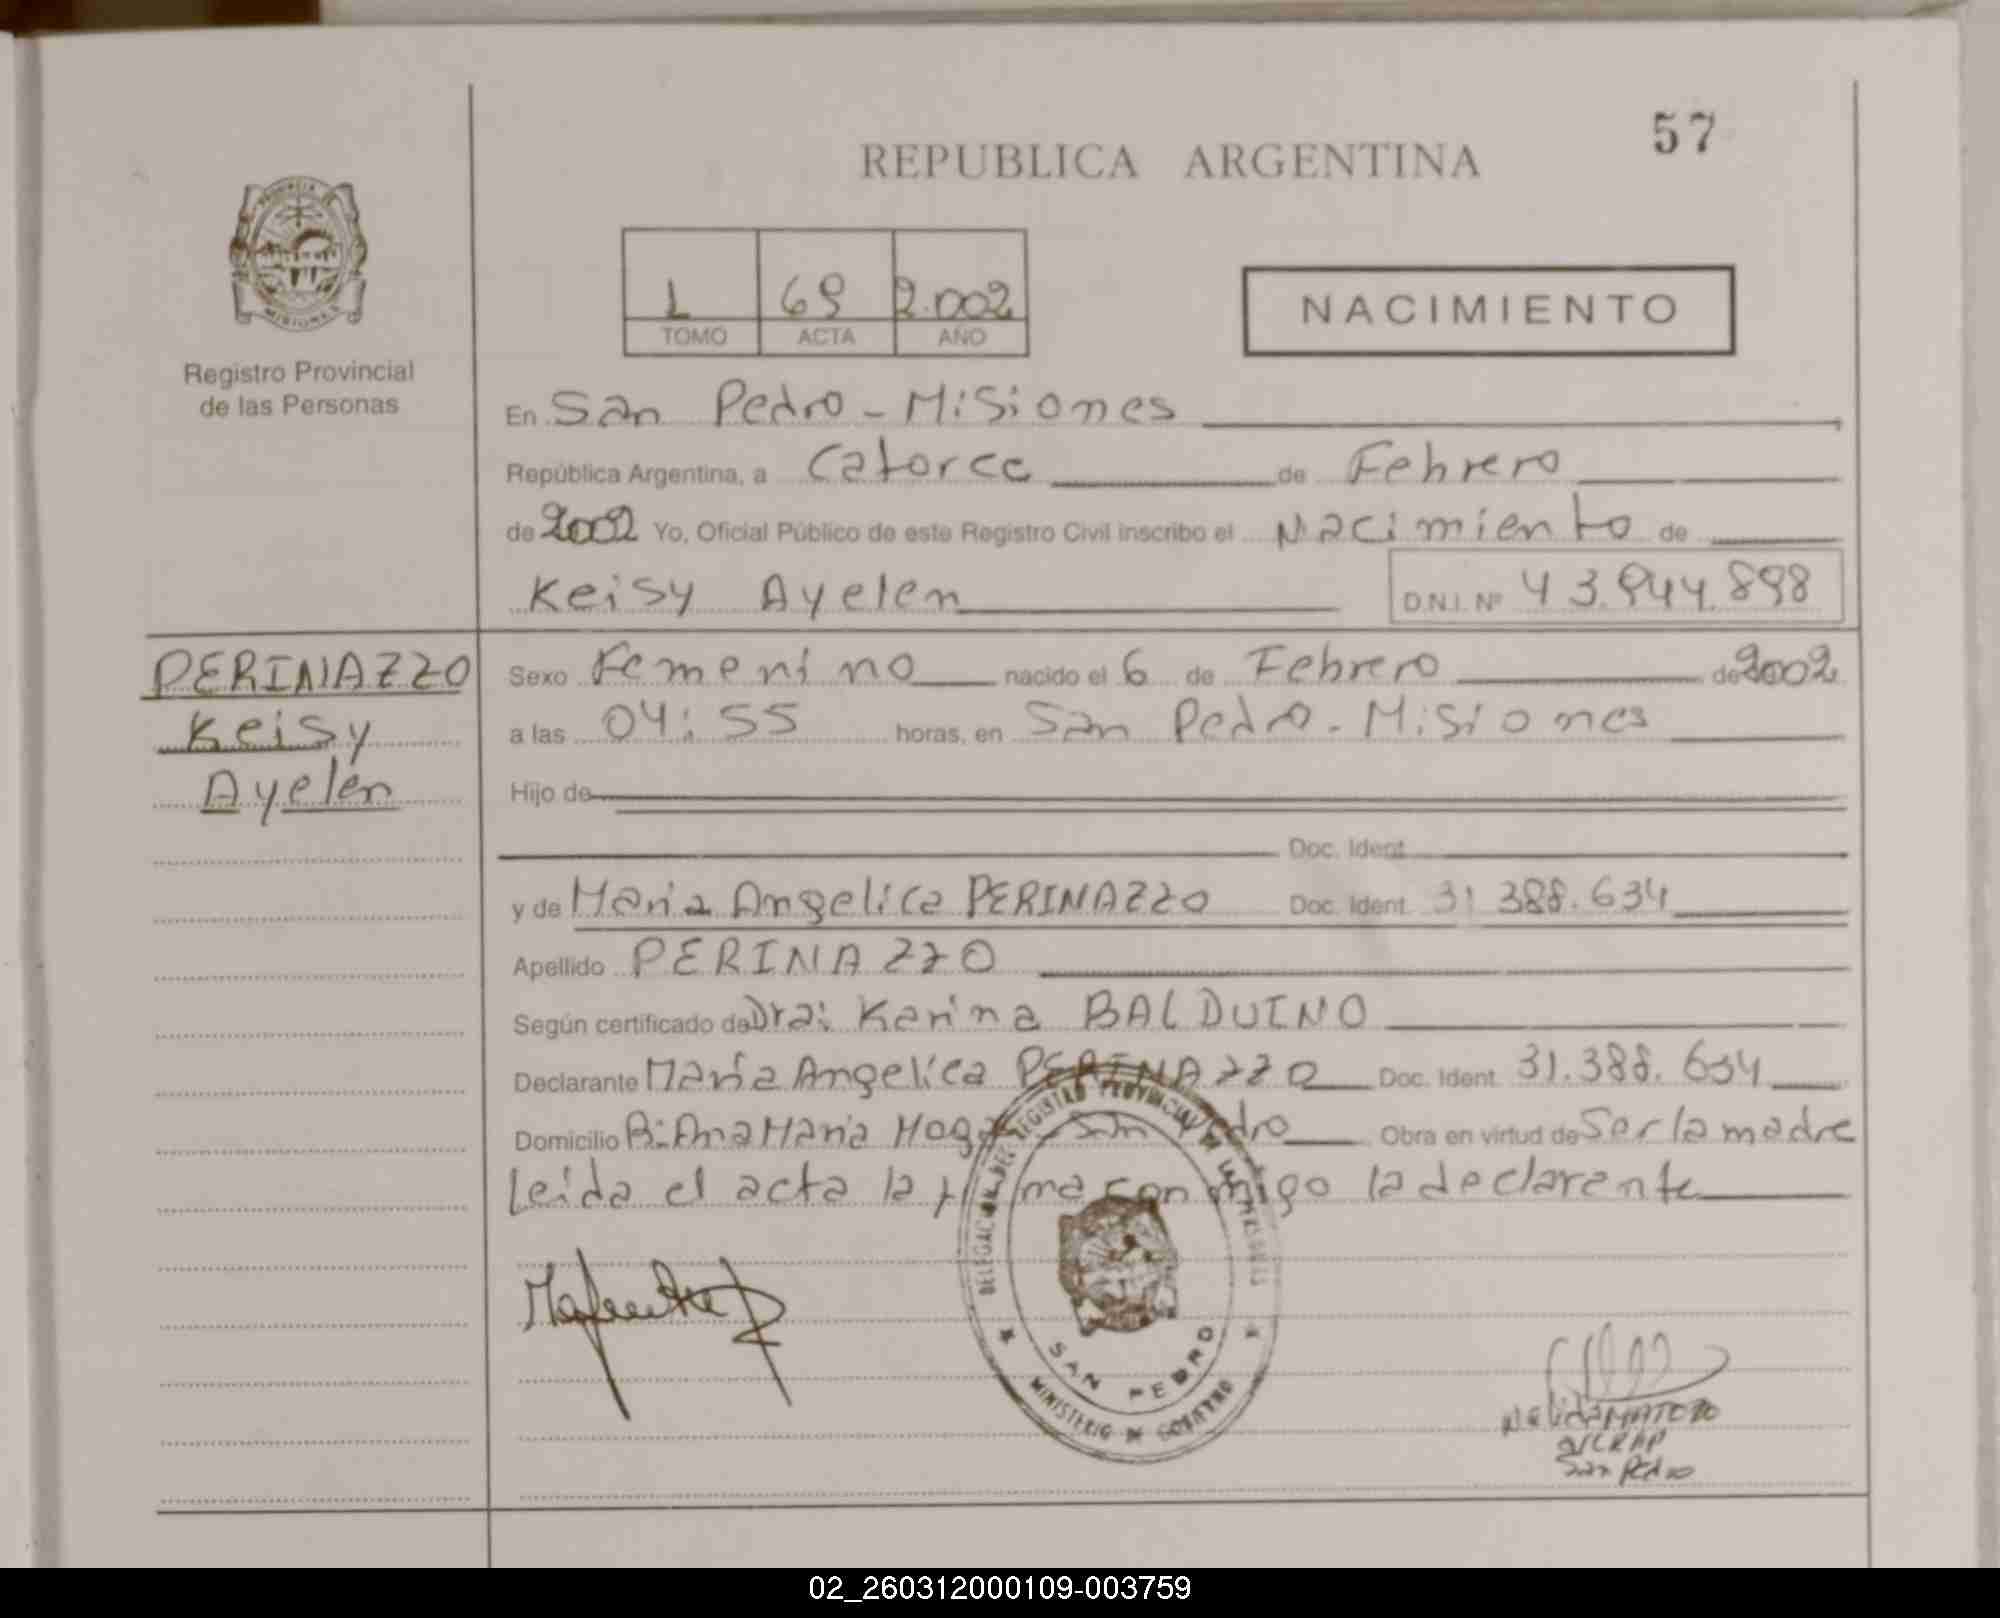 57
REPUBLICA ARGENTINA
PROVINCIA
MISIONES
Registro Provincial
de las Personas
1 69 2.002
TOMO ACTA AÑO
NACIMIENTO
En San Pedro - Misiones
República Argentina, a Catorce de Febrero
de 2002 Yo, Oficial Público de este Registro Civil inscribo el Nacimiento de
Keisy Ayelen D.N.I. Nº 43.944.898
PERINAZZO
Keisy
Ayelén
Sexo Femenino nacido el 6 de Febrero de 2002
a las 04:55 horas, en San Pedro - Misiones
Hijo de
Doc. Ident.
y de Maria Angelica PERINAZZO Doc. Ident. 31.388.634
Apellido PERINAZZO
Según certificado de Dra: Karina BALDUINO
Declarante María Angelica PERINAZZO Doc. Ident. 31.388.634
Domicilio B: Ana Maria San Pedro Obra en virtud de Ser la madre
Leida el acta la firma conmigo la declarente
DELEGACION DEL REGISTRO PROVINCIAL DE LAS PERSONAS
SAN PEDRO
MINISTERIO DE GOBIERNO
Nelida MATOZO
San Pedro
02_260312000109-003759